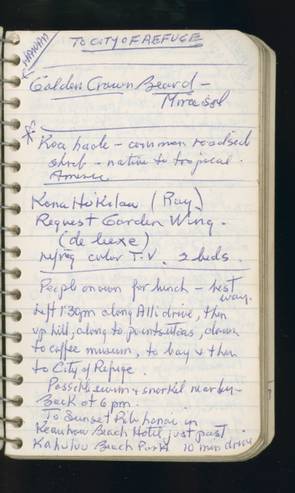 HAWAII
TO CITY OF REFUGE
Golden Crown Beard -
Mirasol
Koa haole - common roadside
shrub - native to tropical
America
Kona Hukilau (Ray)
Request Garden Wing.
(de luxe)
refrig color T.V. 2 beds.
People on own for lunch - best
way.
Left 1:30pm along Alii drive, then
up hill, along to poinsettias, down
to coffee museum, to bay & then
to City of Refuge.
Possible swim & snorkel nearby
Back at 6 pm.
To Sunset Rib lanai in
Keauhou Beach Hotel just past
Kahaluu Beach Park 10 min drive